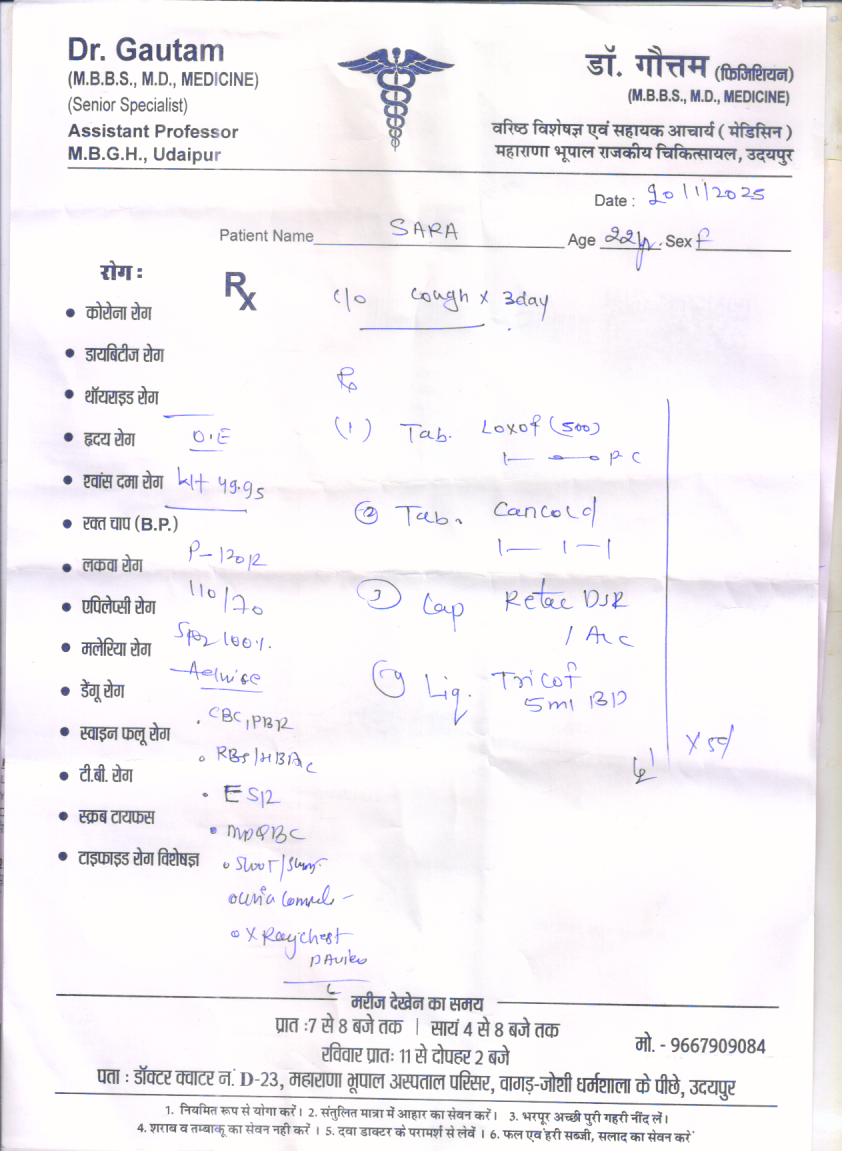 Dr. Gautam
(M.B.B.S., M.D., MEDICINE)
(Senior Specialist)
Assistant Professor
M.B.G.H., Udaipur
डॉ. गौत्तम (फिजिशियन)
(M.B.B.S., M.D., MEDICINE)
वरिष्ठ विशेषज्ञ एवं सहायक आचार्य ( मेडिसिन )
महाराणा भूपाल राजकीय चिकित्सायल, उदयपुर
Date : 20/1/2025
Patient Name SARA Age 22yr. Sex F
रोग :
Rx
• कोरोना रोग
• डायबिटीज रोग
• थॉयराइड रोग
• हृदय रोग
• श्वांस दमा रोग
• रक्त चाप (B.P.)
• लकवा रोग
• एपिलेप्सी रोग
• मलेरिया रोग
• डेंगू रोग
• स्वाइन फलू रोग
• टी.बी. रोग
• स्क्रब टायफस
• टाइफाइड रोग विशेषज्ञ
O.E
wt 49.95
P-120/2
110/70
SPO2 100%.
Advise
. CBC, PBR
• RBS/HBA1C
• ESR
• MPQBC
• X Ray chest
PA view
c/o cough x 3day
Rx
(1) Tab. Loxof (500)
1 — o — o PC
(2) Tab. Cancold
1 — 1 — 1
(3) Cap Retac DSR
1 AC
(4) Liq. Tricof
5ml BD
x 5d
मरीज देखेन का समय
प्रात :7 से 8 बजे तक | सायं 4 से 8 बजे तक
रविवार प्रातः 11 से दोपहर 2 बजे
मो. - 9667909084
पता : डॉक्टर क्वाटर नं. D-23, महाराणा भूपाल अस्पताल परिसर, वागड़-जोशी धर्मशाला के पीछे, उदयपुर
1. नियमित रूप से योगा करें। 2. संतुलित मात्रा में आहार का सेवन करें। 3. भरपूर अच्छी पुरी गहरी नींद लें।
4. शराब व तम्बाकू का सेवन नही करें । 5. दवा डाक्टर के परामर्श से लेवें । 6. फल एवं हरी सब्जी, सलाद का सेवन करें